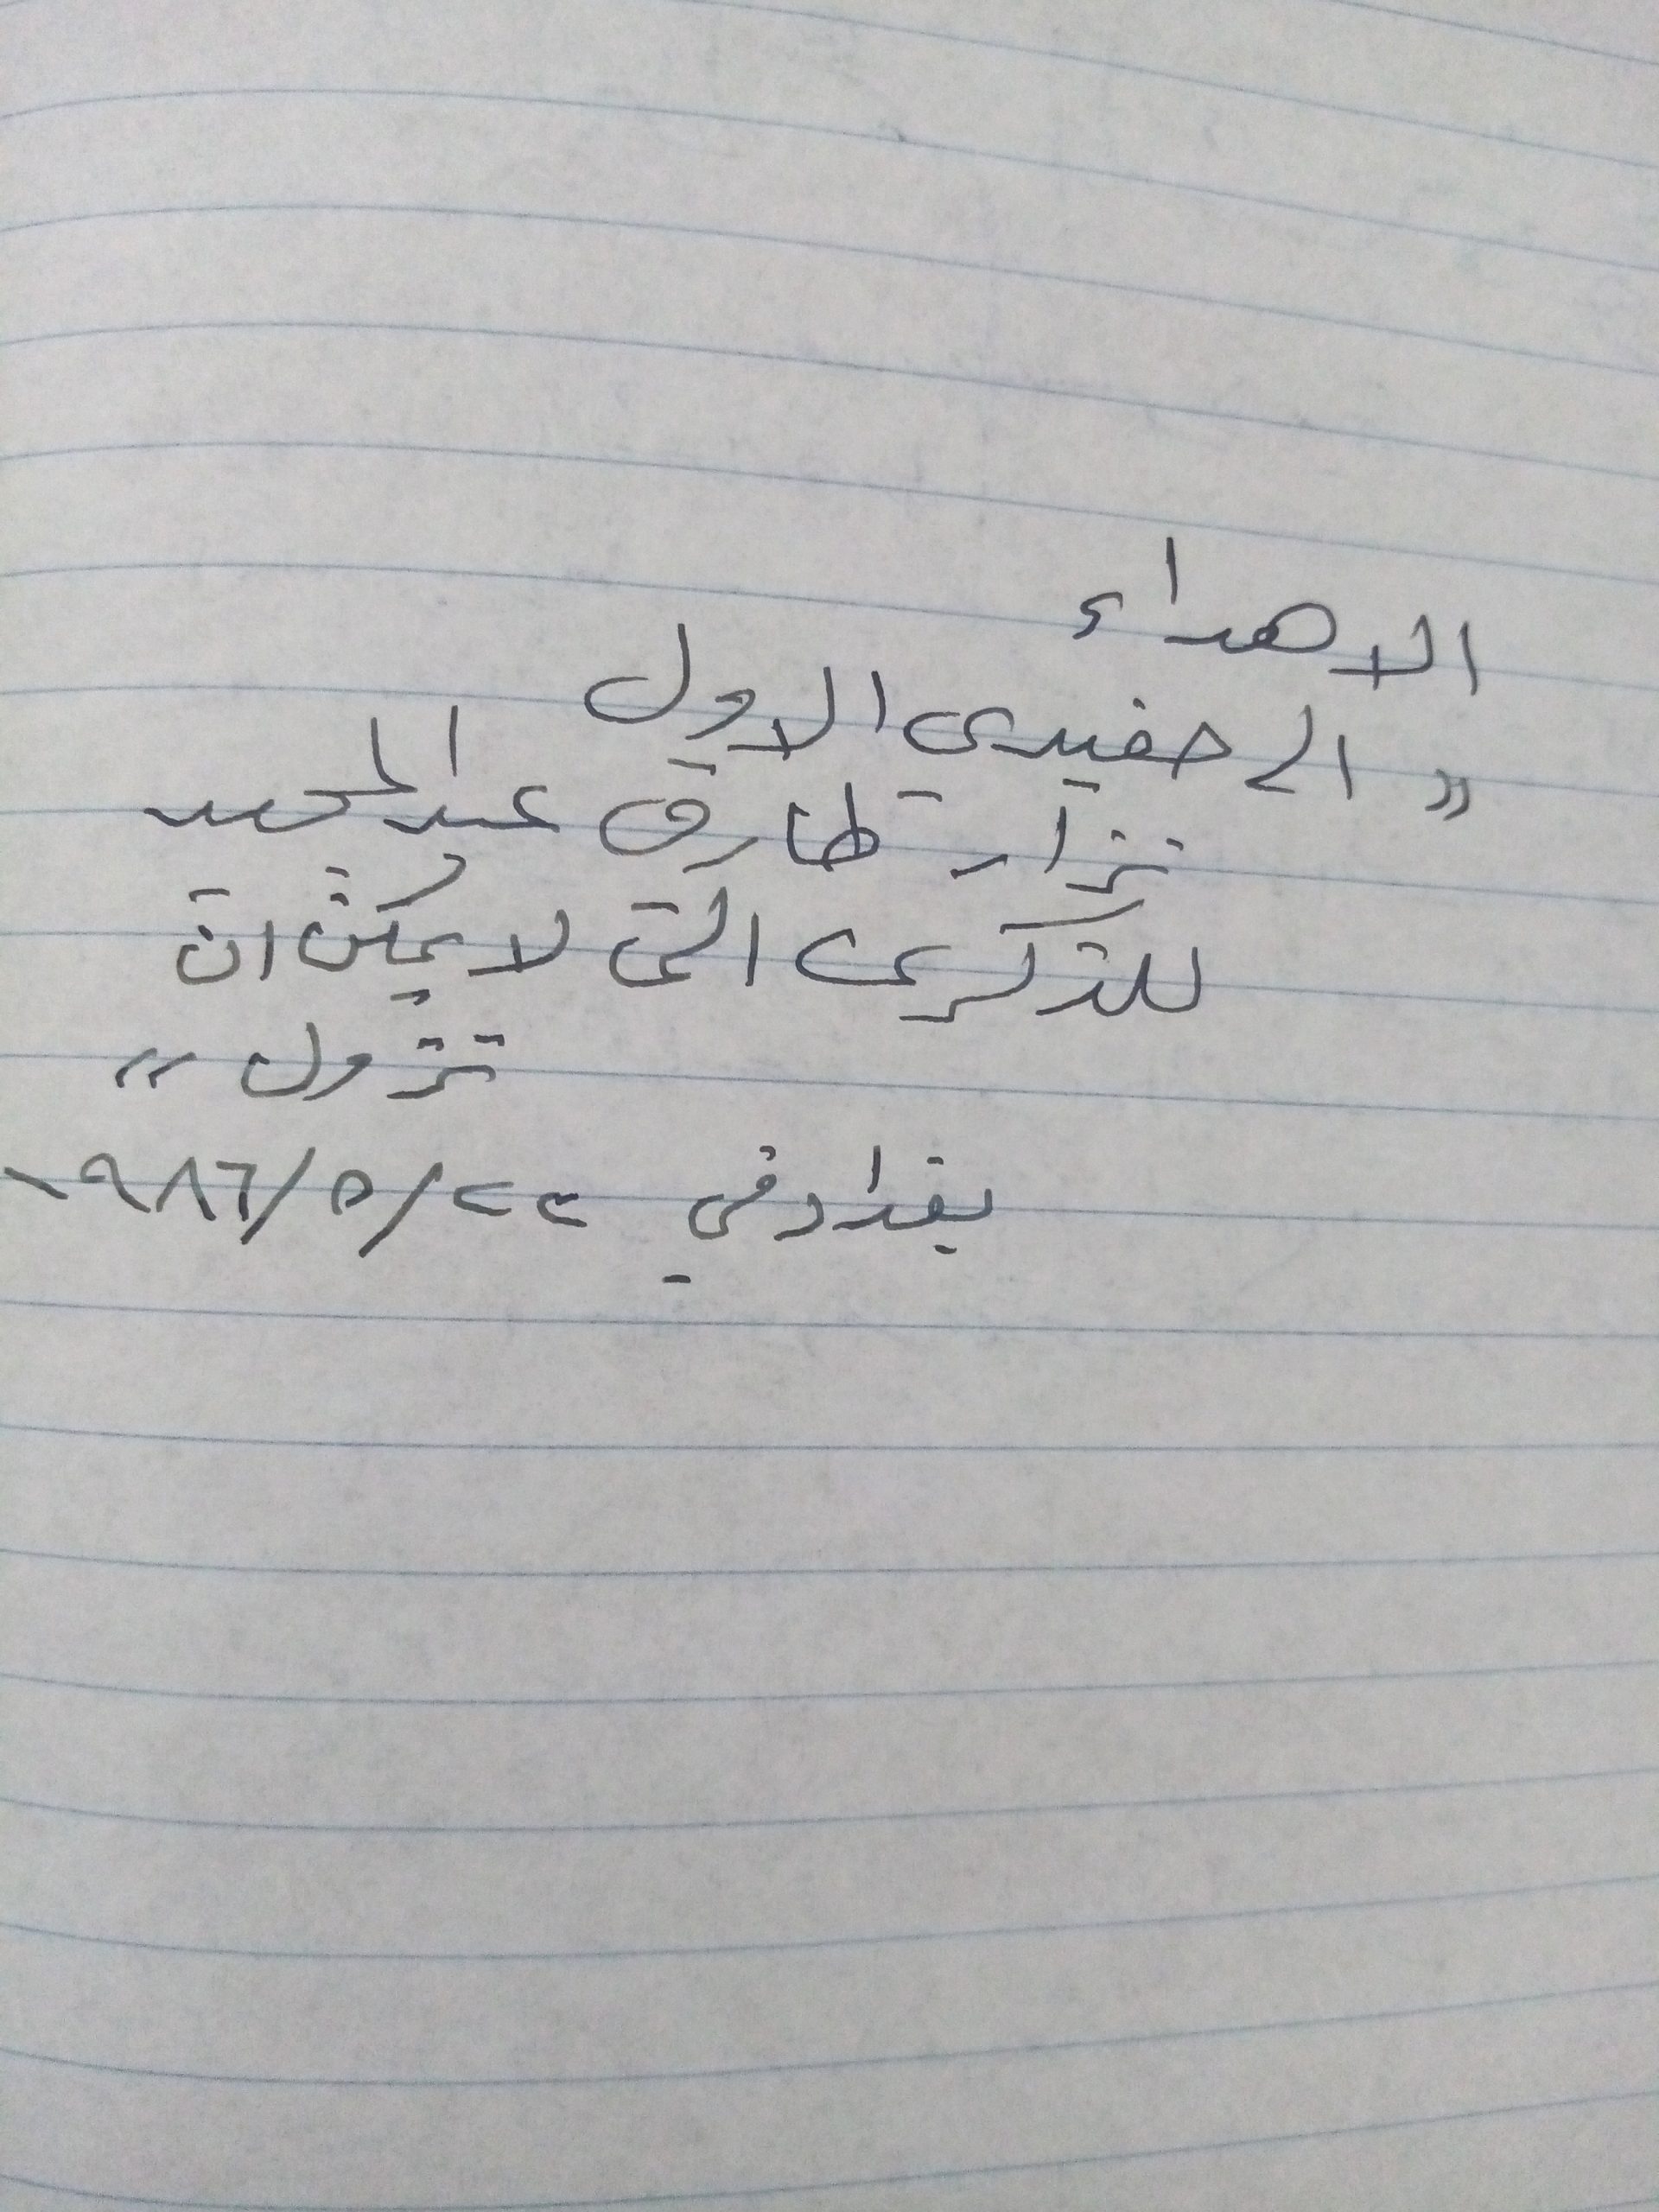 الاهداء
« الى حفيدي الاول
نزار طارق عبد المجيد
للذكرى التي لا يمكن ان
تزول »
بغداد في ٢٢/٥/١٩٨٦